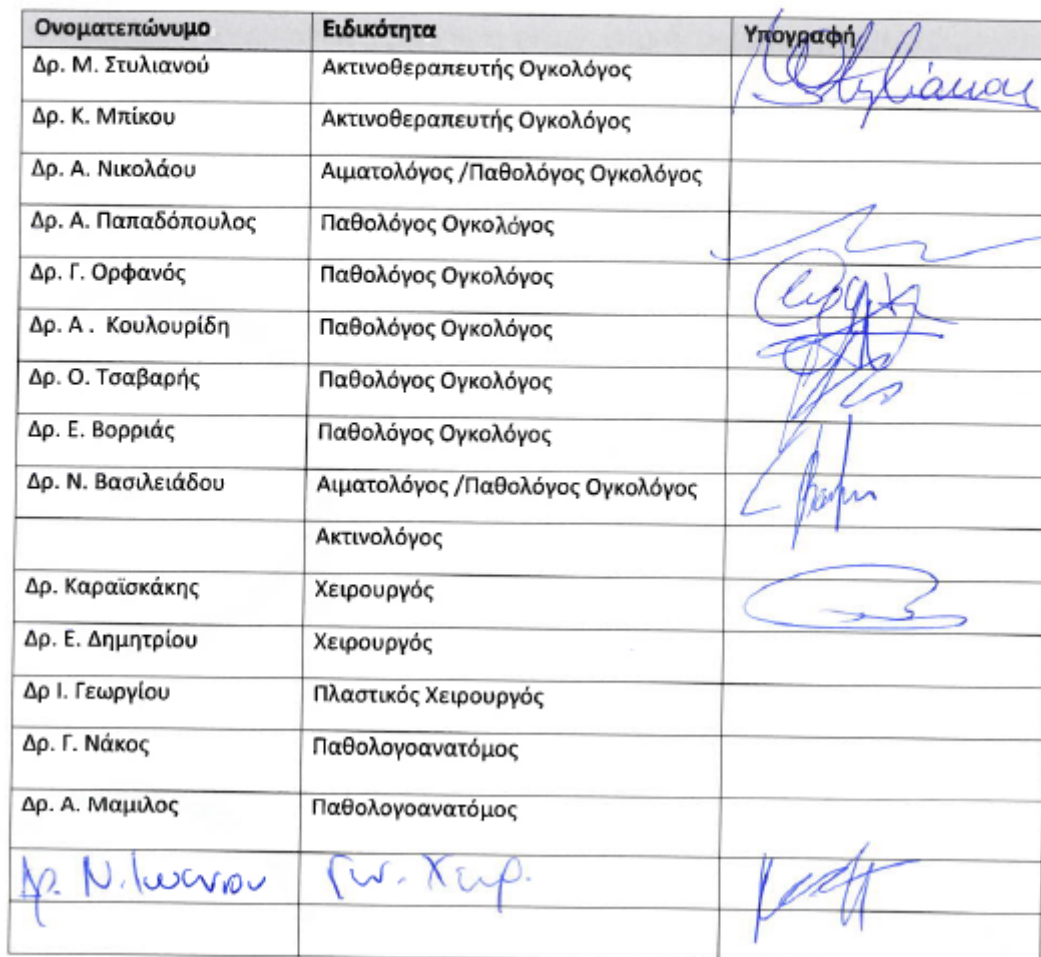 Ονοματεπώνυμο Ειδικότητα Υπογραφή
Δρ. Μ. Στυλιανού Ακτινοθεραπευτής Ογκολόγος
Δρ. Κ. Μπίκου Ακτινοθεραπευτής Ογκολόγος
Δρ. Α. Νικολάου Αιματολόγος /Παθολόγος Ογκολόγος
Δρ. Α. Παπαδόπουλος Παθολόγος Ογκολόγος
Δρ. Γ. Ορφανός Παθολόγος Ογκολόγος
Δρ. Α . Κουλουρίδη Παθολόγος Ογκολόγος
Δρ. Ο. Τσαβαρής Παθολόγος Ογκολόγος
Δρ. Ε. Βορριάς Παθολόγος Ογκολόγος
Δρ. Ν. Βασιλειάδου Αιματολόγος /Παθολόγος Ογκολόγος
Ακτινολόγος
Δρ. Καραϊσκάκης Χειρουργός
Δρ. Ε. Δημητρίου Χειρουργός
Δρ Ι. Γεωργίου Πλαστικός Χειρουργός
Δρ. Γ. Νάκος Παθολογοανατόμος
Δρ. Α. Μαμιλος Παθολογοανατόμος
Δρ. Ν. Ιωαννου Γεν. Χειρ.